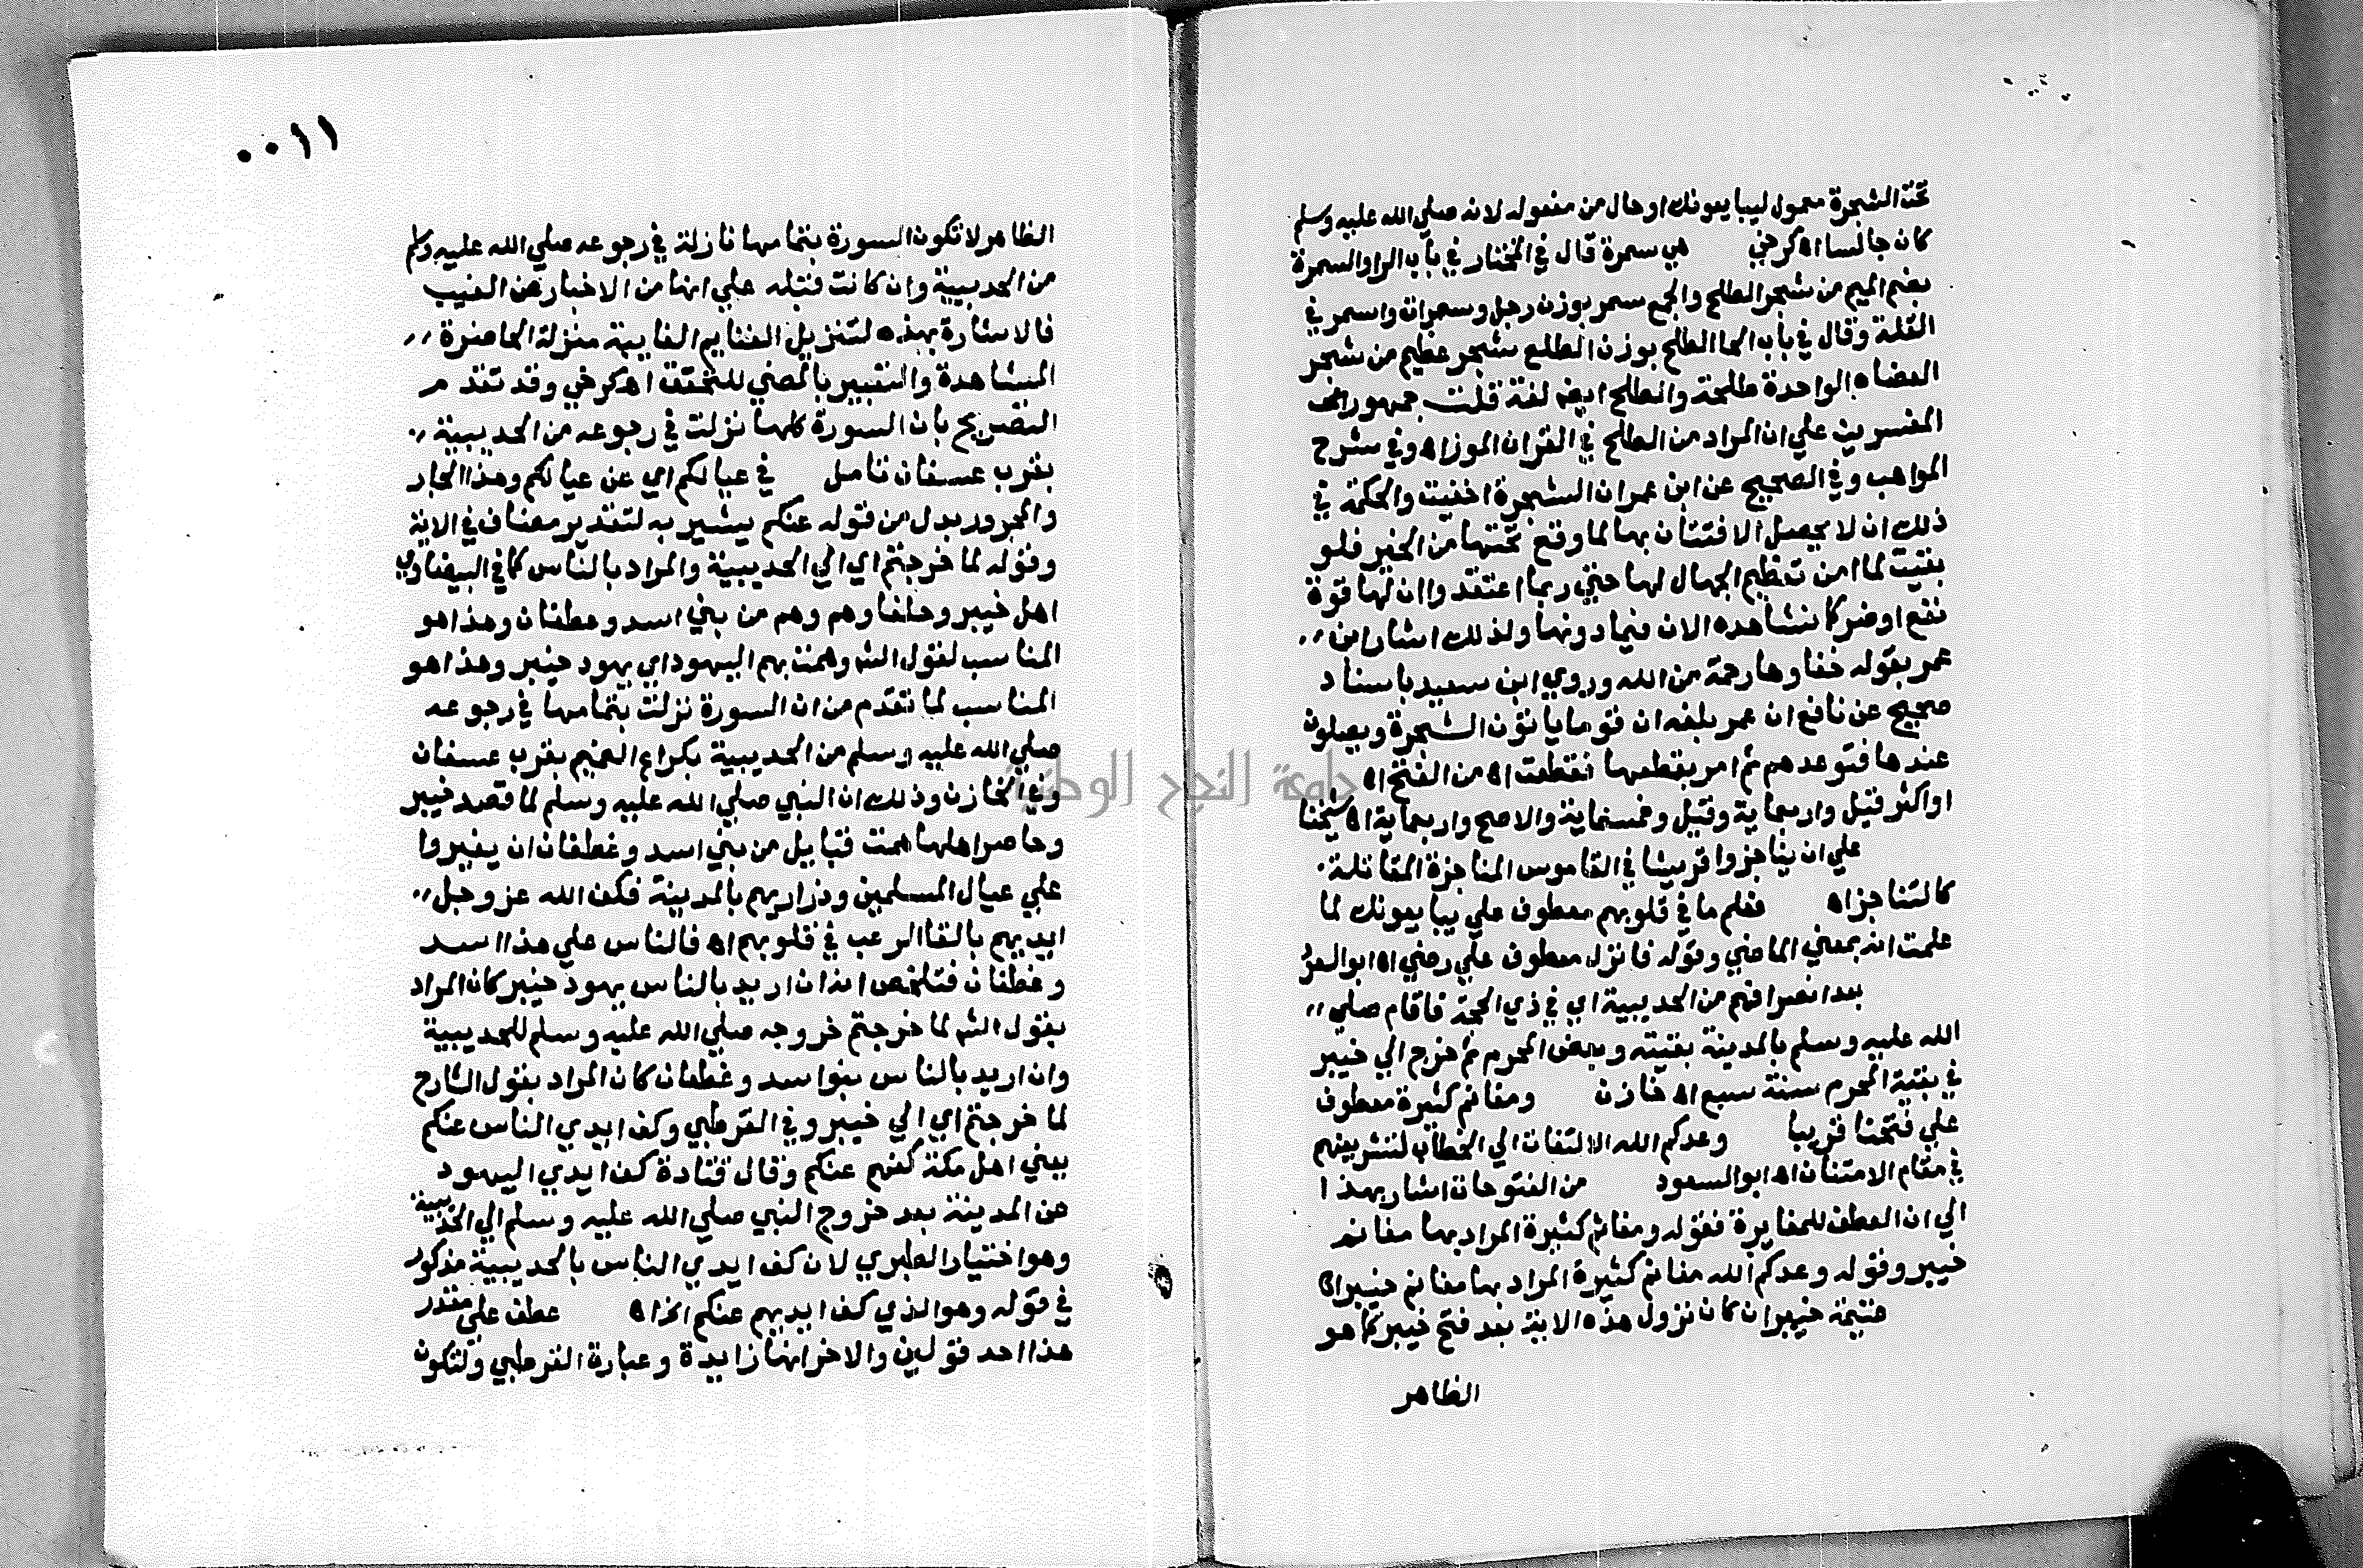 تحت الشجرة معمول ليبايعونك اوحال من مفعوله لانه صلي الله عليه وسلم
كان جالسا اه كرخي هي سمرة قال في المختار في باب الرا والسمرة
بضم الميم من شجر الطلح والجمع سمر بوزن رجل وسمرات واسمر في
القلة وقال في باب الحا الطلح بوزن الطلع شجر عظيم من شجر
العضاه الواحدة طلحة والطلح ايضا لغة قلت جمهور
المفسرين علي ان المراد من الطلح في القران الموز اه وفي شرح
المواهب وفي الصحيح عن ابن عمر ان الشجرة اخفيت والحكمة في
ذلك ان لا يحصل الافتتان بها لما وقع تحتها من الخير فلو
بقيت لما امن تعظيم الجهال لها حتي ربما اعتقدوا ان لها قوة
نفع او ضر كما نشاهده الان فيما دونها ولذلك اشار ابن
عمر بقوله خفاوها رحمة من الله وروي ابن سعيد باسناد
صحيح عن نافع ان عمر بلغه ان قوما ياتون الشجرة ويصلون
عندها فتوعدهم ثم امر بقطعها فقطعت اه من الفتح اه
او اكثر قيل واربعماية وقيل وخمسماية والاصح واربعماية اه شيخنا
علي ان يناجزوا قريشا في القاموس المناجزة المقاتلة
كالتناجز اه فعلم ما في قلوبهم معطوف علي يبايعونك لما
علمت انه بمعني الماضي وقوله فانزل معطوف علي رضي اه ابو السعود
بعد انصرافهم من الحديبية اي في ذي الحجة فاقام صلي
الله عليه وسلم بالمدينة بقيته وبعض المحرم ثم خرج الي خيبر
في بقية المحرم سنة سبع اه خازن ومغانم كثيرة معطوف
علي فتحنا قريبا وعدكم الله الالتفات الي الخطاب لتشريفهم
في مقام الامتنان اه ابو السعود من الفتوحات اشار بهذا
الي ان العطف للمغايرة فقوله ومغانم كثيرة المراد بها مغانم
خيبر وقوله وعدكم الله مغانم كثيرة المراد بها مغانم خيبر اه
غنيمة خيبر ان كان نزول هذه الاية بعد فتح خيبر كما هو
الظاهر
٠٠١١
الظاهر لا تكون السورة بتمامها نازلة في رجوعه صلي الله عليه وسلم
من الحديبية وان كانت قبله علي انها من الاخبار عن الغيب
فالاشارة بهذه لتنزيل الغنايم الغايبة منزلة الحاضرة
المشاهدة والتعبير بالمضي للتحقق اه كرخي وقد تقدم
التصريح بان السورة كلها نزلت في رجوعه من الحديبية
بقرب عسفان تامل في عيالكم اي عن عيالكم وهذا الجار
والمجرور بدل من قوله عنكم يشير به لتقدير مضاف في الاية
وقوله لما خرجتم اي الي الحديبية والمراد بالناس كما في البيضاوي
اهل خيبر وحلفاوهم وهم من بني اسد وغطفان وهذا هو
المناسب لقول الش وهمت بهم اليهود اي يهود خيبر وهذا هو
المناسب لما تقدم من ان السورة نزلت بتمامها في رجوعه
صلي الله عليه وسلم من الحديبية بكراع الغميم بقرب عسفان
وفي الخازن وذلك ان النبي صلي الله عليه وسلم لما قصد خيبر
وحاصر اهلها همت قبايل من بني اسد وغطفان ان يغيروا
علي عيال المسلمين وذراريهم بالمدينة فكف الله عز وجل
ايديهم بالقا الرعب في قلوبهم اه فالناس علي هذا اسد
وغطفان فتلخص انه ان اريد بالناس يهود خيبر كان المراد
بقول الش لما خرجتم خروجه صلي الله عليه وسلم للحديبية
وان اريد بالناس بنوا سد وغطفان كان المراد بقول الشارح
لما خرجتم اي الي خيبر وفي القرطبي وكف ايدي الناس عنكم
يعني اهل مكة كفهم عنكم وقال قتادة كف ايدي اليهود
عن المدينة بعد خروج النبي صلي الله عليه وسلم الي الحديبية
وهو اختيار الطبري لان كف ايدي الناس بالحديبية مذكور
في قوله وهو الذي كف ايديهم عنكم الخ اه عطف علي مقدر
هذا احد قولين والاخر انها زايدة وعبارة القرطبي ولتكون
جامعة النجاح الوطنية